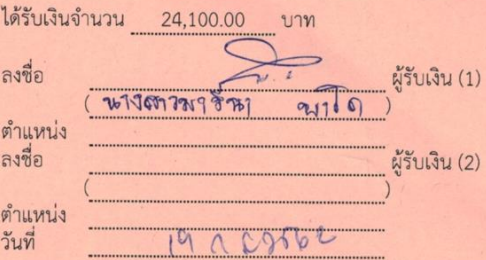 ได้รับเงินจำนวน 24,100.00 บาท
ลงชื่อ ผู้รับเงิน (1)
( นางสาวมารีนา )
ตำแหน่ง
ลงชื่อ ผู้รับเงิน (2)
( )
ตำแหน่ง
วันที่ 19